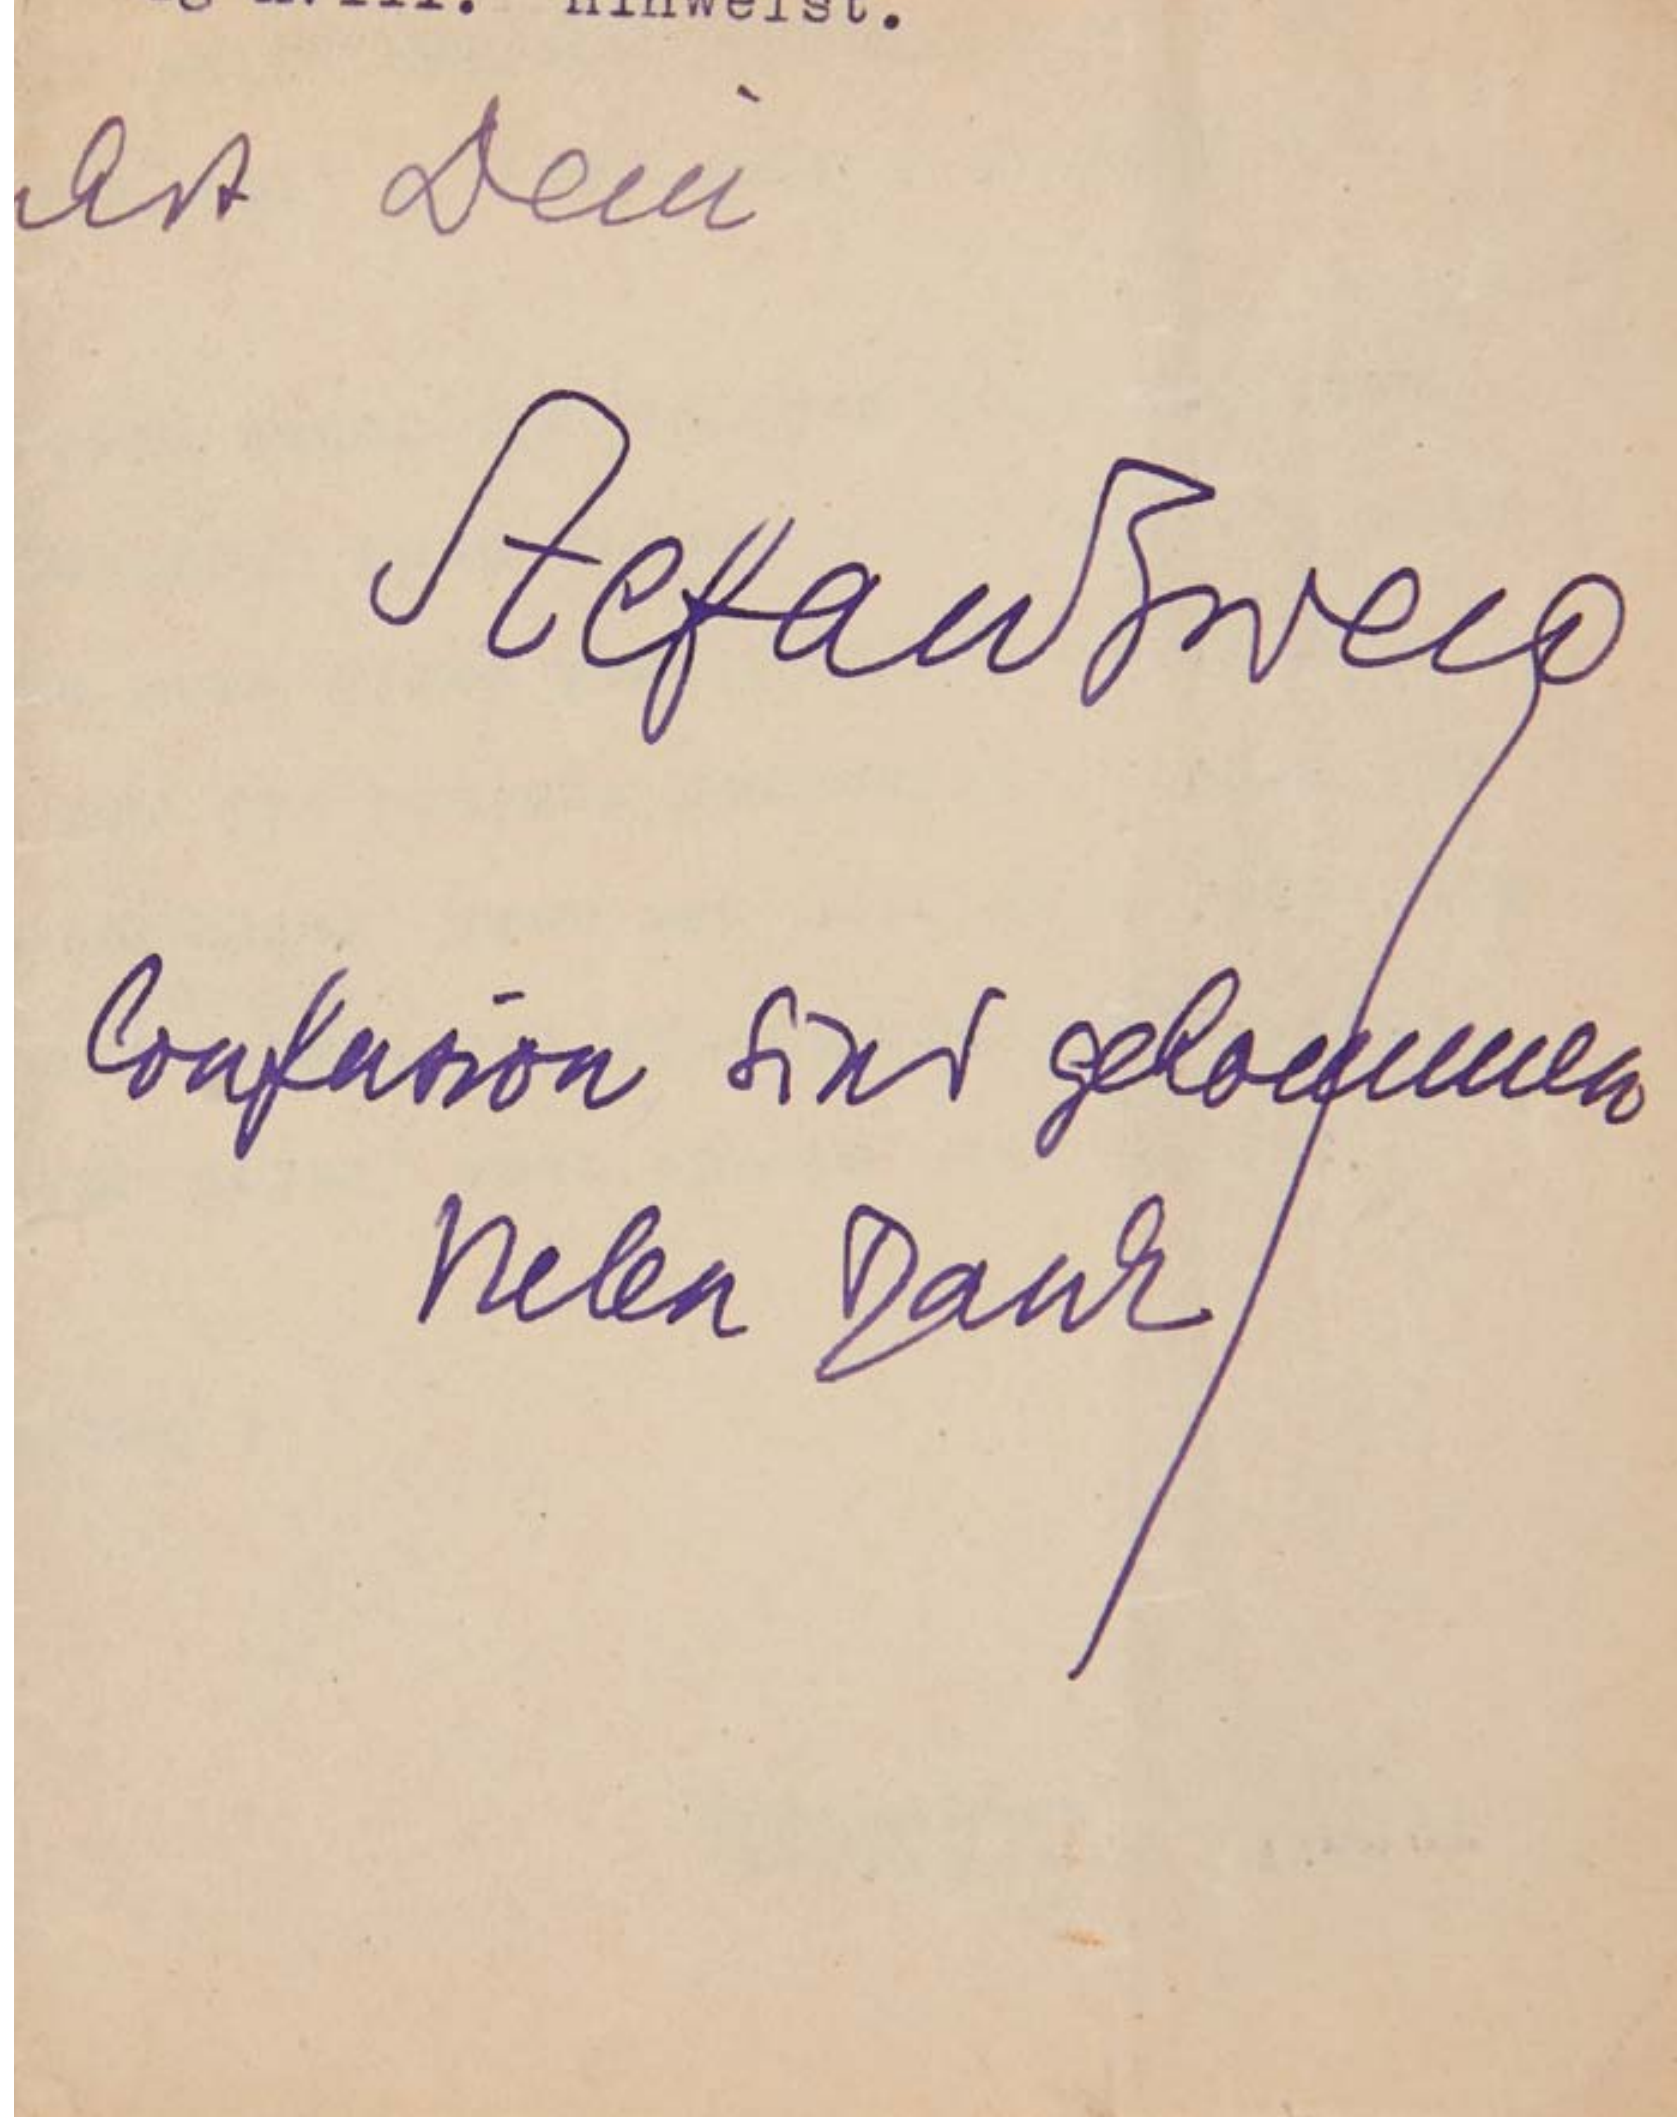 hinweist.
Dein
Stefan Zweig
Confusion sind gekommen
Vielen Dank